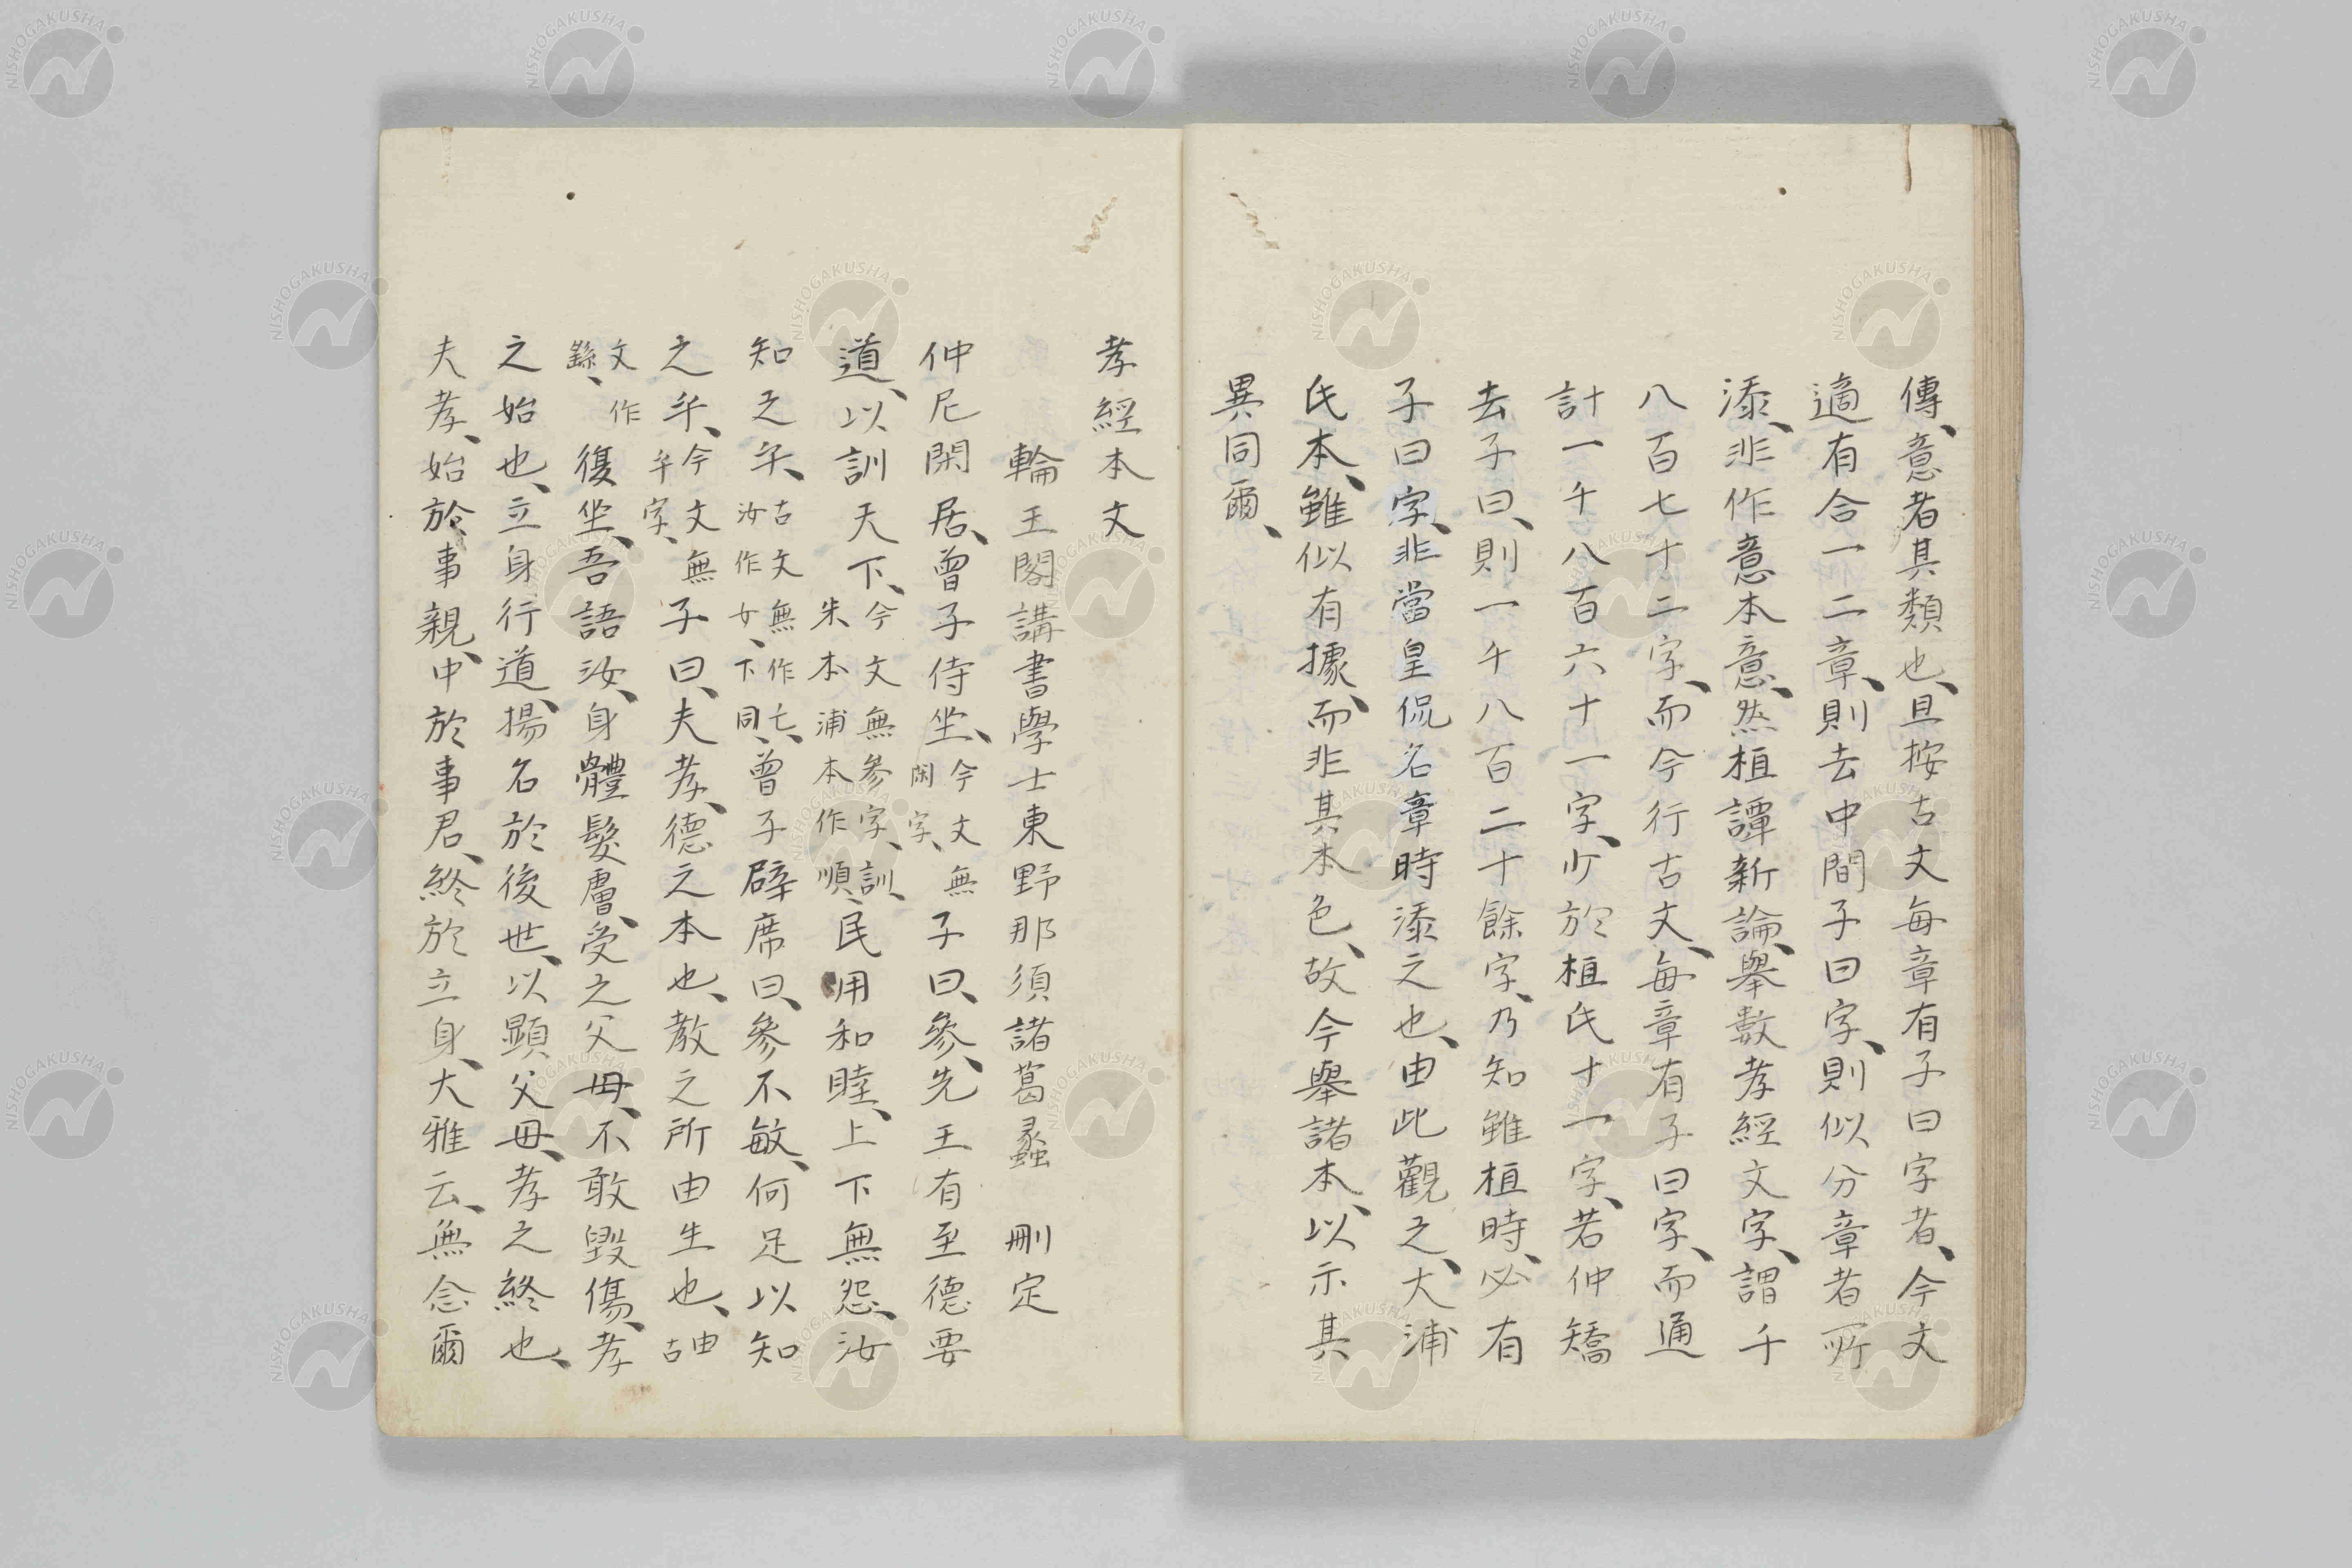 傳、意者其類也、且按古文每章有子曰字者、今文
適有合一二章、則去中間子曰字、則似分章者所
添、非作意本意、然桓譚新論、舉數孝經文字、謂千
八百七十二字、而今行古文、每章有子曰字、而通
計一千八百六十一字、少於桓氏十一字、若仲矯
去子曰、則一千八百二十餘字、乃知雖桓時、必有
子曰字、非當皇侃名章時添之也、由此觀之、大浦
氏本、雖似有據、而非其本色、故今舉諸本、以示其
異同爾、
孝經本文
輪王閣講書學士東野那須諸葛蠡 刪定
仲尼閑居、曾子侍坐、今文無閑字、子曰、參、先王有至德要
道、以訓天下、今文無參字、訓、朱本浦本作順、民用和睦、上下無怨、汝
知之乎、古文無作亡、汝作女、下同、曾子辟席曰、參不敏、何足以知
之乎、今文無乎字、子曰、夫孝、德之本也、教之所由生也、由古
文作繇、復坐、吾語汝、身體髮膚、受之父母、不敢毀傷、孝
之始也、立身行道、揚名於後世、以顯父母、孝之終也、
夫孝、始於事親、中於事君、終於立身、大雅云、無念爾